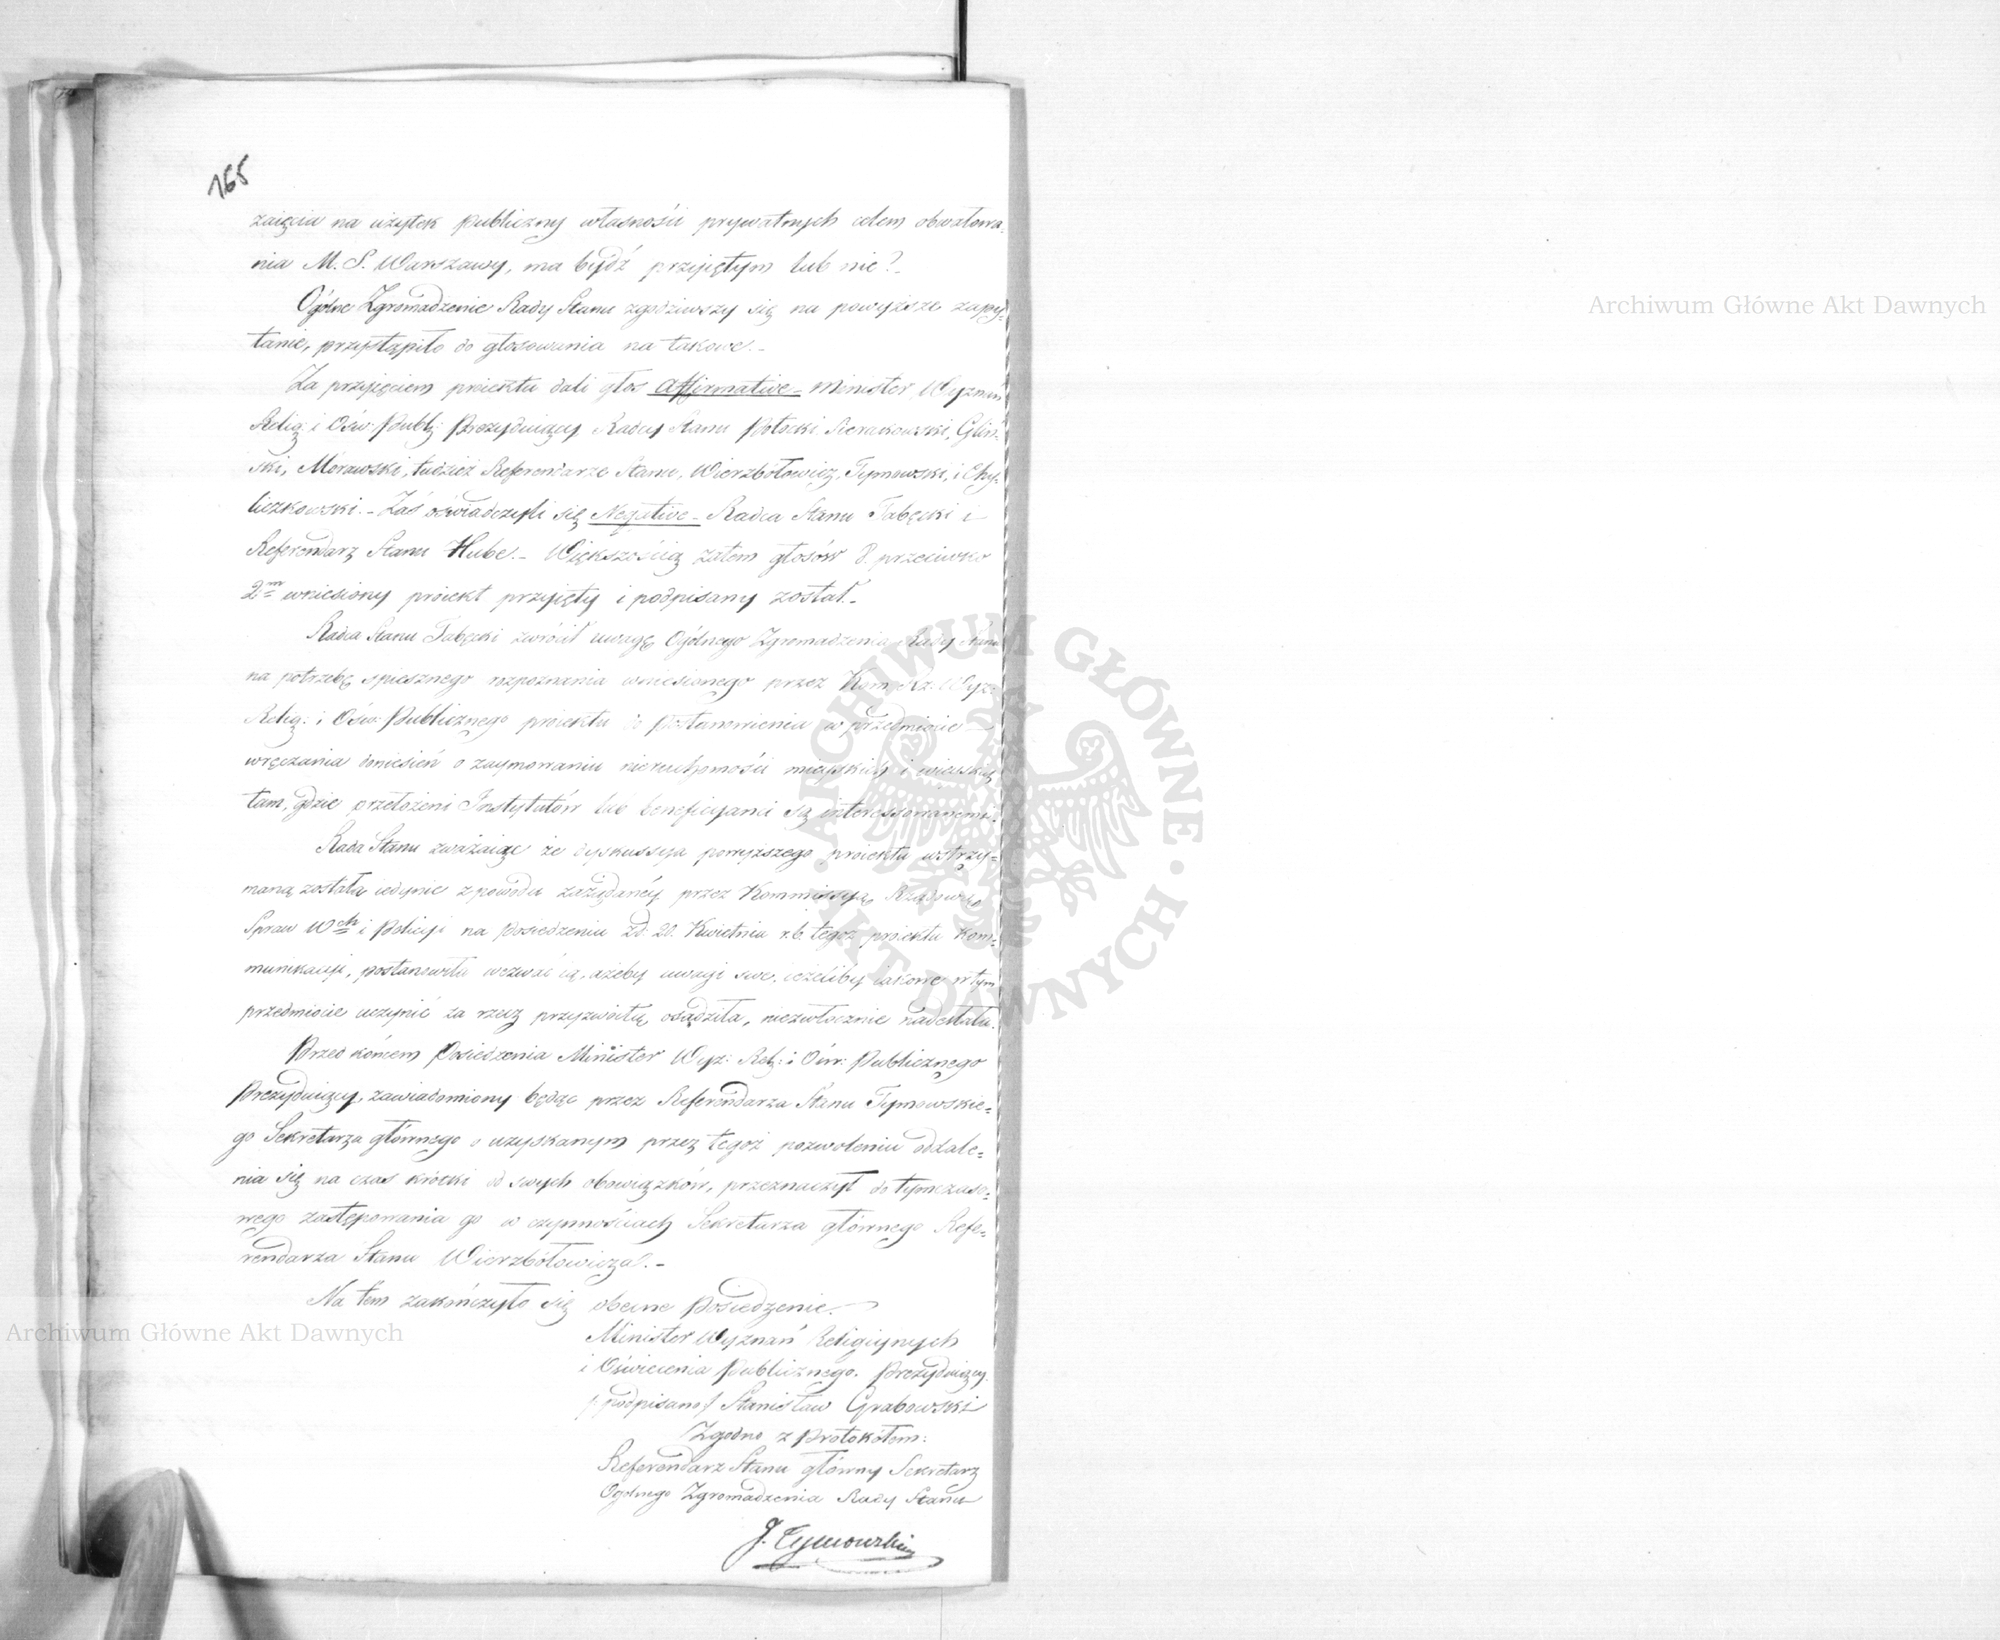 165
zaięcia na użytek publiczny własności prywatnych celem obwałowa-
nia M. S. Warszawy, ma bydź przyiętym lub nie? -
Ogólne Zgromadzenie Rady Stanu zgodziwszy się na powyższe zapy-
tanie, przystąpiło do głosowania na takowe. -
Za przyięciem proiektu dali głos Affirmative - Minister Wyznań
Relig: i Ośw: Publ: Prezyduiący, Radcy Stanu Potocki, Sierakowski, Gliń-
ski, Morawski, tudzież Referendarze Stanu, Wierzbołowicz, Tymowski, i Chy-
liczkowski. - Zaś oświadczyli się Negative - Radca Stanu Tabęcki i
Referendarz Stanu Hube. - Większością zatem głosów 8. przeciwko
2m wniesiony proiekt przyięty i podpisany został. -
Radca Stanu Tabęcki zwrócił uwagę Ogólnego Zgromadzenia Rady Stanu
na potrzebę spiesznego rozpoznania wniesionego przez Kom: Rz: Wyz:
Relig: i Ośw: Publicznego proiektu do postanowienia w przedmiocie
wręczania doniesień o zaymowaniu nieruchomości mieyskich i wieyskich
tam, gdzie przełożeni Instytutów lub beneficyanci są interessowanemi.
Rada Stanu zważaiąc że dyskussya powyższego proiektu wstrzy-
maną została iedynie z powodu zażądanéy przez Kommissyą Rządową
Spraw Wch i Policyi na posiedzeniu z d. 20. Kwietnia r. b. tegoż proiektu kom-
munikacyi, postanowiła wezwać ią, ażeby uwagi swe, ieżeliby iakowe w tym
przedmiocie uczynić za rzecz przyzwoitą osądziła, niezwłocznie nadesłała.
Przed końcem Posiedzenia Minister Wyz: Rel: i Ośw: Publicznego
Prezyduiący, zawiadomiony będąc przez Referendarza Stanu Tymowskie-
go Sekretarza głównego o uzyskanym przez tegoż pozwoleniu oddale-
nia się na czas krótki od swych obowiązków, przeznaczył do tymczaso-
wego zastępowania go w czynnościach Sekretarza głównego Refe-
rendarza Stanu Wierzbołowicza. -
Na tem zakończyło się obecne Posiedzenie. -
Minister Wyznań Religiynych
i Oświecenia Publicznego. Prezyduiący.
/podpisano/ Stanisław Grabowski
Zgodno z Protokółem:
Referendarz Stanu główny Sekretarz
Ogólnego Zgromadzenia Rady Stanu
J. Tymowski
Archiwum Główne Akt Dawnych
Archiwum Główne Akt Dawnych
ARCHIWUM GŁÓWNE · AKT DAWNYCH ·